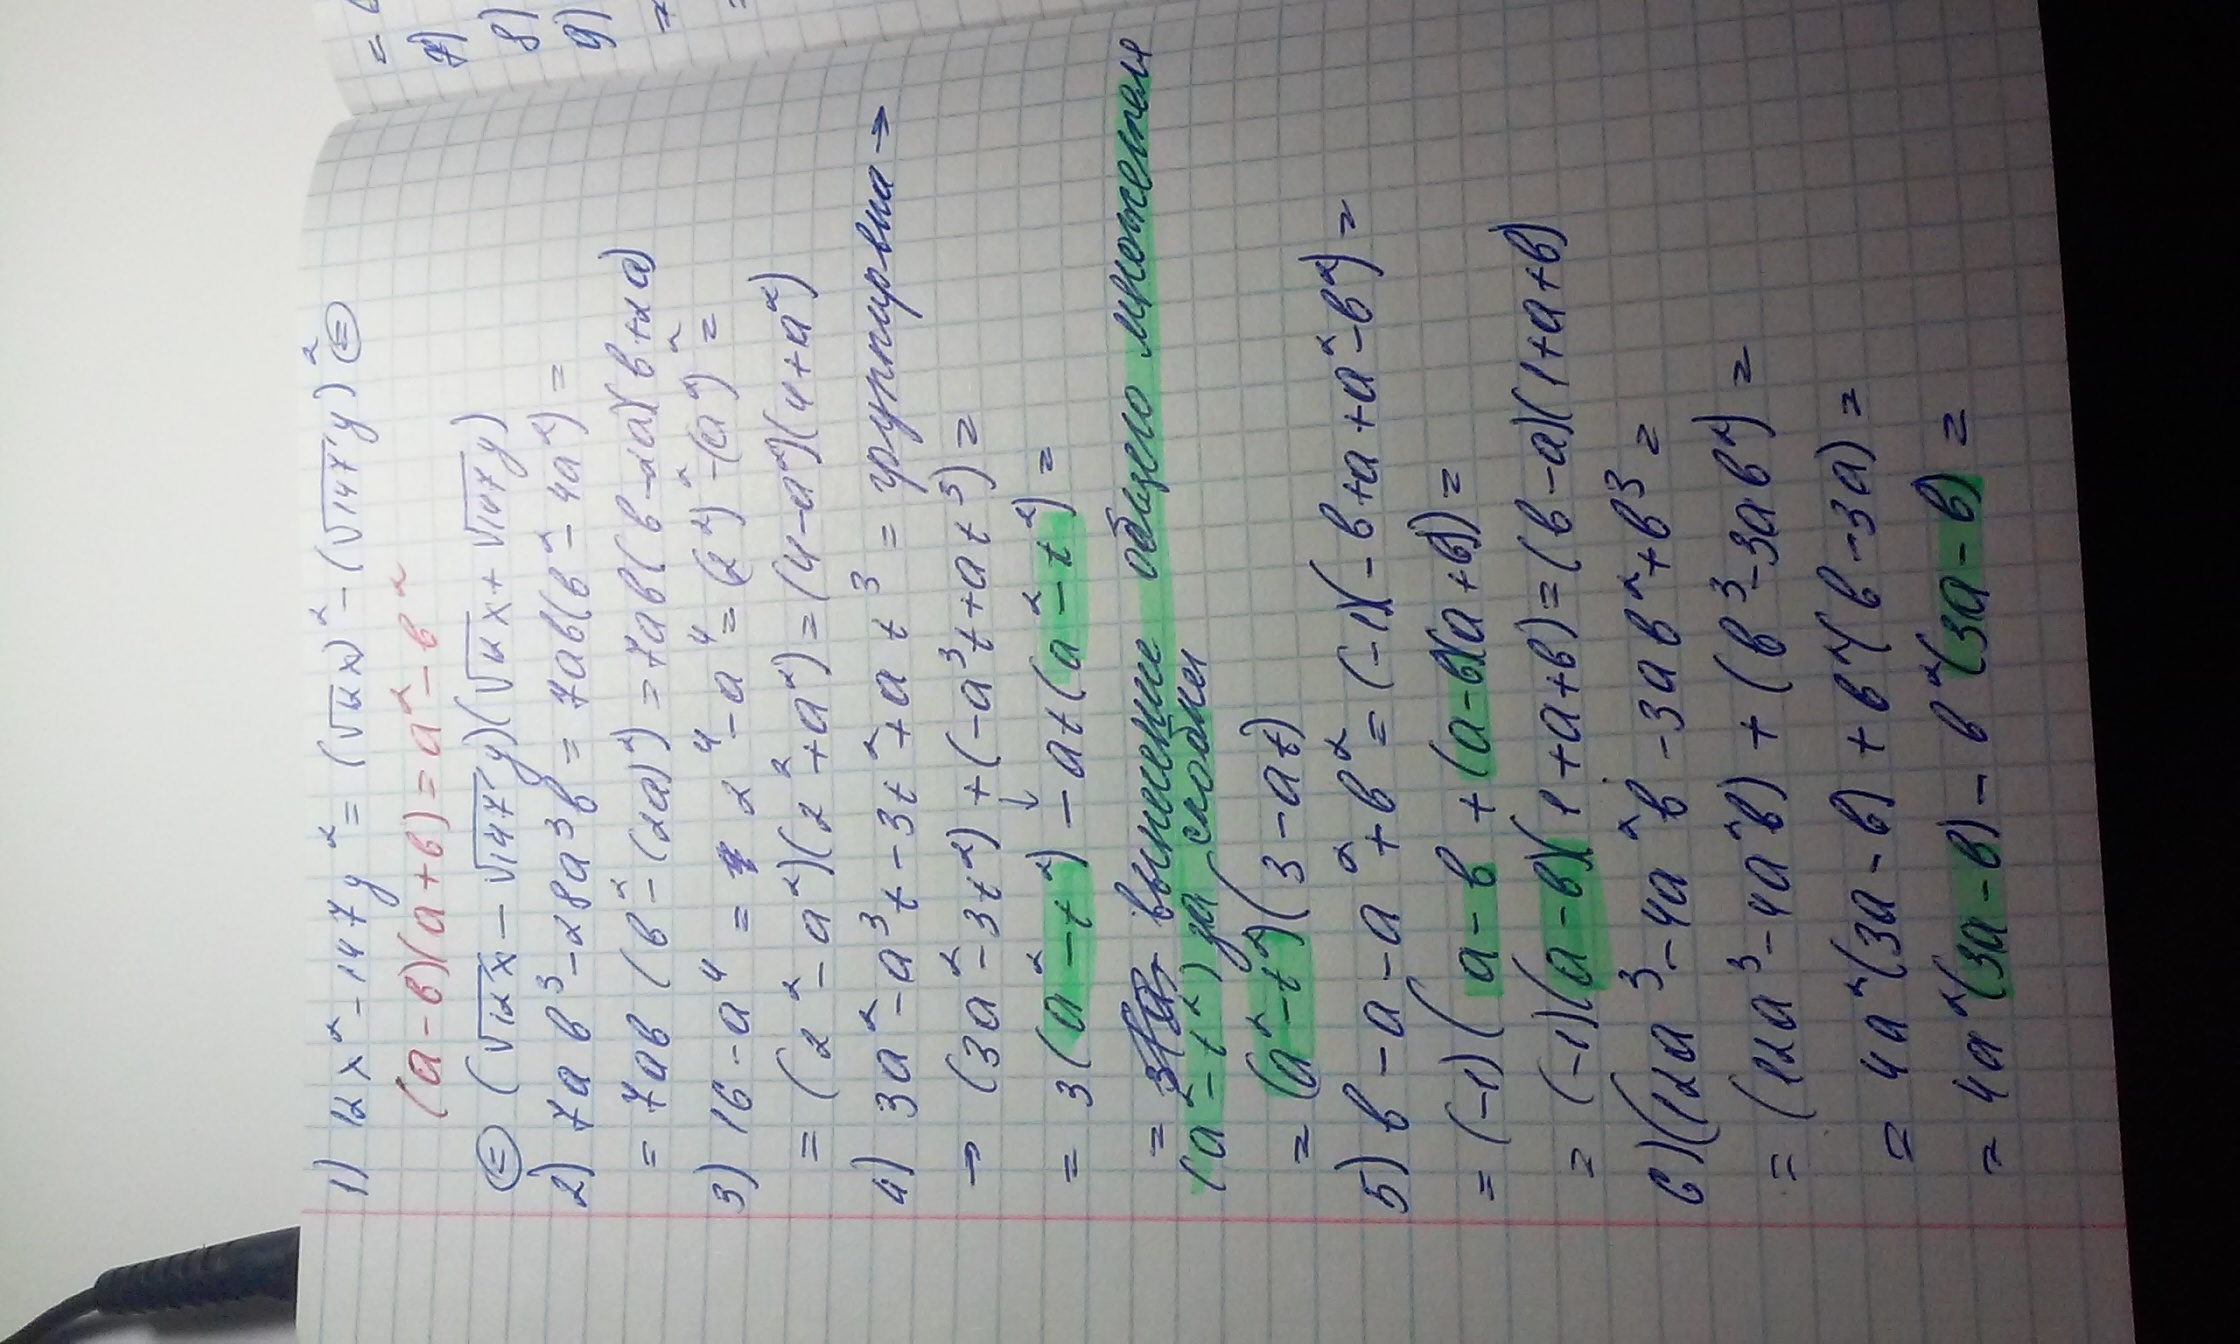 1) 12x² - 147y² = (√12 x)² - (√147 y)² ⊜
(a-b)(a+b) = a² - b²
⊜ (√12 x - √147 y)(√12 x + √147 y)
2) 7ab³ - 28a³b = 7ab(b² - 4a²) =
= 7ab(b² - (2a)²) = 7ab(b-2a)(b+2a)
3) 16 - a⁴ = 2⁴ - a⁴ = (2²)² - (a²)² =
= (2² - a²)(2² + a²) = (4 - a²)(4 + a²)
4) 3a² - a³t - 3t² + at³ = группировка →
→ (3a² - 3t²) + (-a³t + at³) =
= 3(a² - t²) - at(a² - t²) =
= вынесение общего множителя
(a² - t²) за скобки
= (a² - t²)(3 - at)
5) b - a - a² + b² = (-1)(-b + a + a² - b²) =
= (-1)(a - b + (a-b)(a+b)) =
= (-1)(a-b)(1+a+b) = (b-a)(1+a+b)
6) (12a³ - 4a²b - 3ab² + b³ =
= (12a³ - 4a²b) + (b³ - 3ab²) =
= 4a²(3a - b) + b²(b - 3a) =
= 4a²(3a - b) - b²(3a - b) =
=
7)
8)
9)
=
=